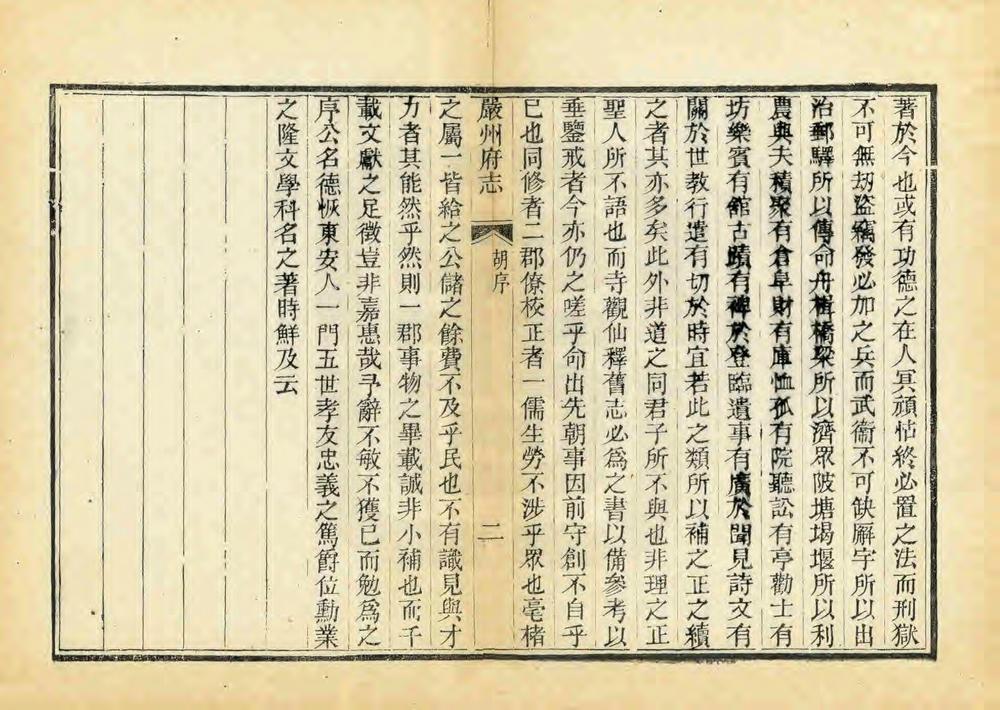 著於今也或有功德之在人冥頑怙終必置之法而刑獄
不可無刼盜竊發必加之兵而武衞不可缺廨宇所以出
治郵驛所以傳命舟楫橋梁所以濟眾陂塘堨堰所以利
農與夫積聚有倉阜財有庫恤孤有院聽訟有亭勸士有
坊樂賓有館古蹟有裨於登臨遺事有廣於聞見詩文有
關於世教行遣有切於時宜若此之類所以補之正之續
之者其亦多矣此外非道之同君子所不與也非理之正
聖人所不語也而寺觀仙釋舊志必爲之書以備參考以
垂鑒戒者今亦仍之嗟乎命出先朝事因前守創不自乎
已也同修者二郡僚校正者一儒生勞不涉乎眾也毫楮
嚴州府志
胡序
二
之屬一皆給之公儲之餘費不及乎民也不有識見與才
力者其能然乎然則一郡事物之畢載誠非小補也而千
載文獻之足徵豈非嘉惠哉予辭不敏不獲已而勉爲之
序公名德恢東安人一門五世孝友忠義之篤爵位勳業
之隆文學科名之著時鮮及云